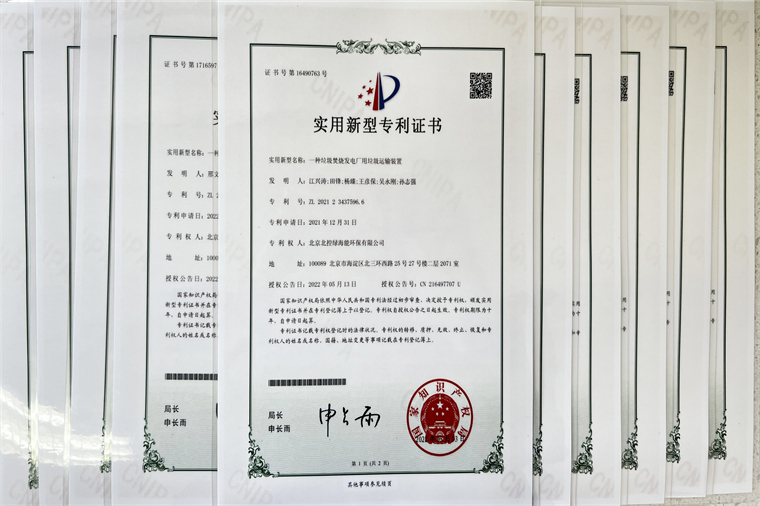 证书号第16490763号
实用新型专利证书
实用新型名称：一种垃圾焚烧发电厂用垃圾运输装置
发明人：江兴涛;田锋;杨嵊;王彦保;吴永刚;孙志强
专利号：ZL 2021 2 3437596.6
专利申请日：2021年12月31日
专利权人：北京北控绿海能环保有限公司
地址：100089 北京市海淀区北三环西路25号27号楼二层2071室
授权公告日：2022年05月13日 授权公告号：CN 216497707 U
国家知识产权局依照中华人民共和国专利法经过初步审查，决定授予专利权，颁发实用
新型专利证书并在专利登记簿上予以登记。专利权自授权公告之日起生效。专利权期限为十
年，自申请日起算。
专利证书记载专利权登记时的法律状况。专利权的转移、质押、无效、终止、恢复和专
利权人的姓名或名称、国籍、地址变更等事项记载在专利登记簿上。
局长
申长雨
申长雨
国家知识产权局
第 1 页 (共 2 页)
其他事项参见续页
证书号第1716597
实用新型名称：一种
专利号：ZL 2
专利申请日：2022
专利权人：北京
地址：1000
授权公告日：2022
国家知识产权
新型专利证书并在专
年，自申请日起算。
专利证书记载
利权人的姓名或名称、
局长
申长雨
CNIPA